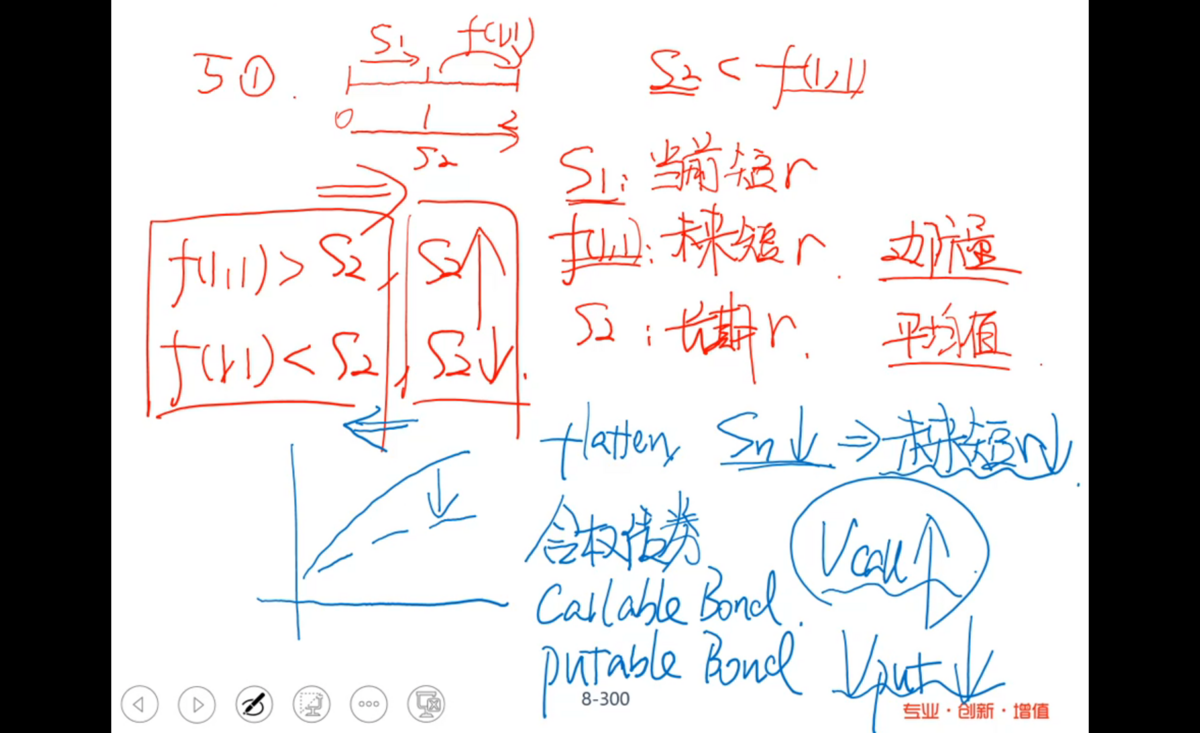 5①.
S1 f(1,1)
0 1 2
S2
S2 < f(1,1)
S1: 当前短r
f(1,1): 未来短r. 边际量
S2: 长期r. 平均值.
f(1,1) > S2, S2↑
f(1,1) < S2, S2↓.
flatten, Sn↓ ⇒ 未来短r↓.
含权债券
Vcall↑
Callable Bond.
putable Bond Vput↓
8-300
专业·创新·增值